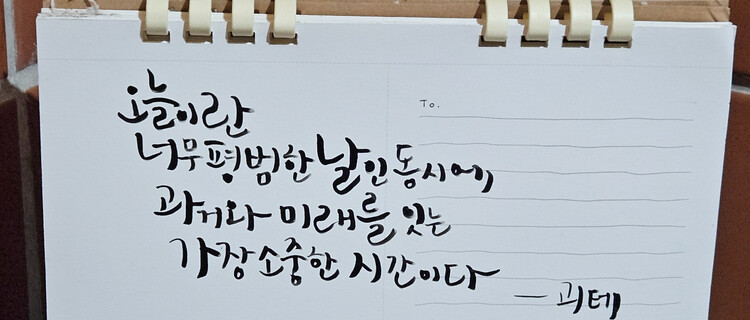 오늘이란
너무 평범한 날인 동시에
과거와 미래를 잇는
가장 소중한 시간이다
- 괴테
To.